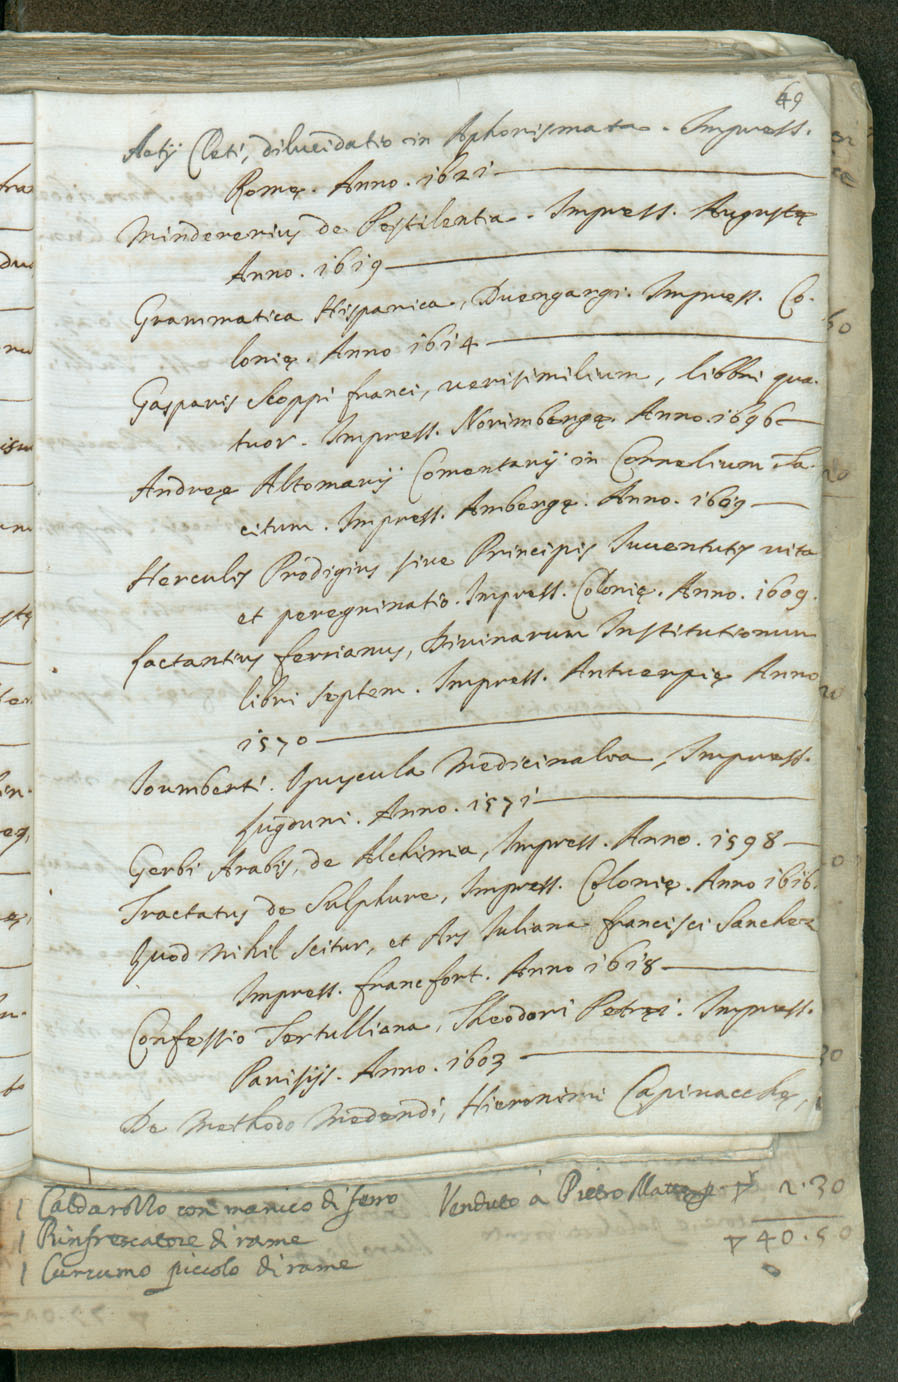 69
Aetij Cleti, dilucidatio in Aphorismata. Impress.
Romę. Anno. 1621
Mindererius de Pestilentia. Impress. Augustę
Anno. 1619
Grammatica Hispanica, Duengangi. Impress. Co-
lonię. Anno 1614
Gasparis Scoppi franci, verisimilium, libbri qua-
tuor. Impress. Norimbergę. Anno. 1696
Andreę Altomarij Comentarij in Cornelium Ta-
citum. Impress. Ambergę. Anno. 1609
Herculis Prodigius sive Principis Iuventutis vita
et peregrinatio. Impress. Colonię. Anno. 1609.
Lactantius ferrianus, Divinarum Institutionum
libri septem. Impress. Antverpię Anno
1570
Ioumberti. Opuscula Medicinalia, Impress.
Lugduni. Anno. 1571
Gerbi Arabis, de Alchimia, Impress. Anno. 1598
Tractatus de Sulphure, Impress. Colonię. Anno 1616.
Quod nihil scitur, et Ars Iuliana francisci Sanchez
Impress. francfort. Anno 1618
Confessio Tertulliana, Theodori Petręi. Impress.
Parisijs. Anno. 1603
De Methodo Medendi, Hieronimi Capinacchę,
1 Caldarozzo con manico di ferro Venduto à Pietro 2.30
1 Rinfrescatore di rame 40.50
1 Cuccumo piccolo di rame